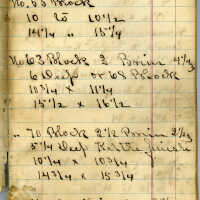 No. 53 Block
10 to 10 1/2
14 1/4 " 15 1/4
No 63 Block 2
6 Deep or 68 Block
10 1/4 x 11 1/4
15 1/2 x 16 1/2
" 70 Block 2 1/2
5 3/4 Deep
10 1/4 x 10 3/4
14 3/4 x 15 3/4